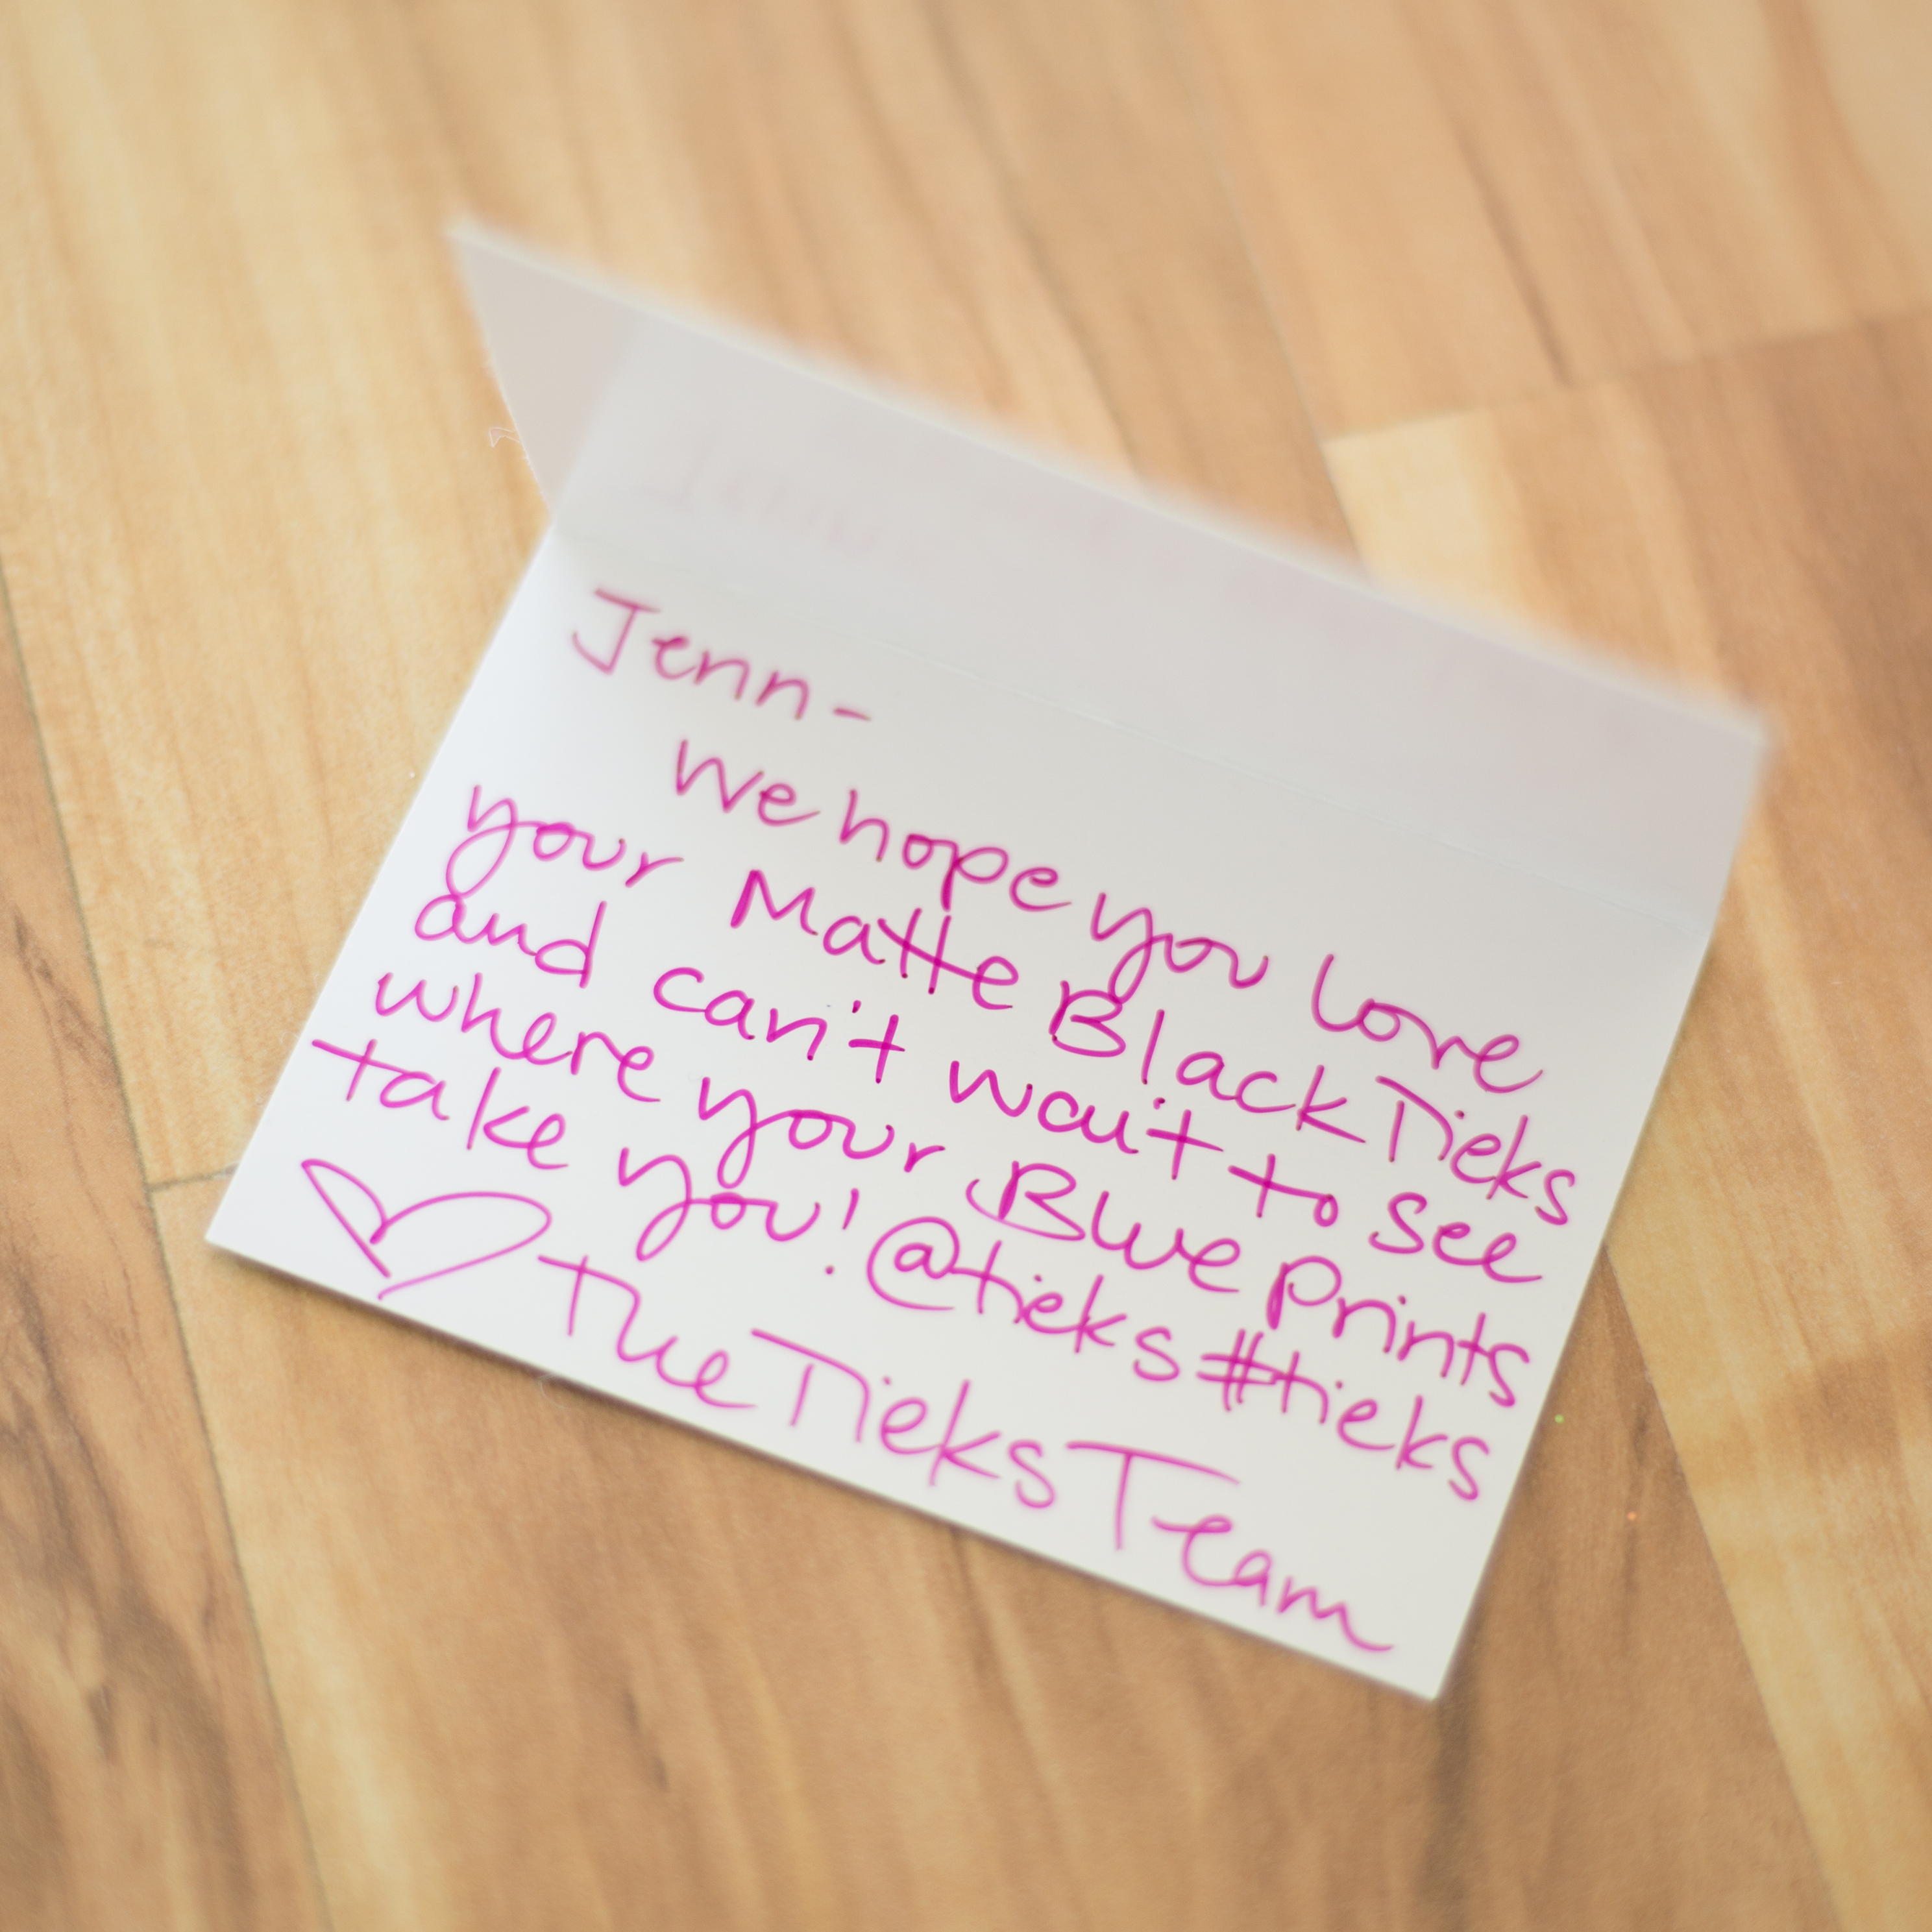 Jenn-
We hope you love
your Matte Black Tieks
and can't wait to see
where your Blue Prints
take you! @tieks #tieks
♡ the Tieks Team